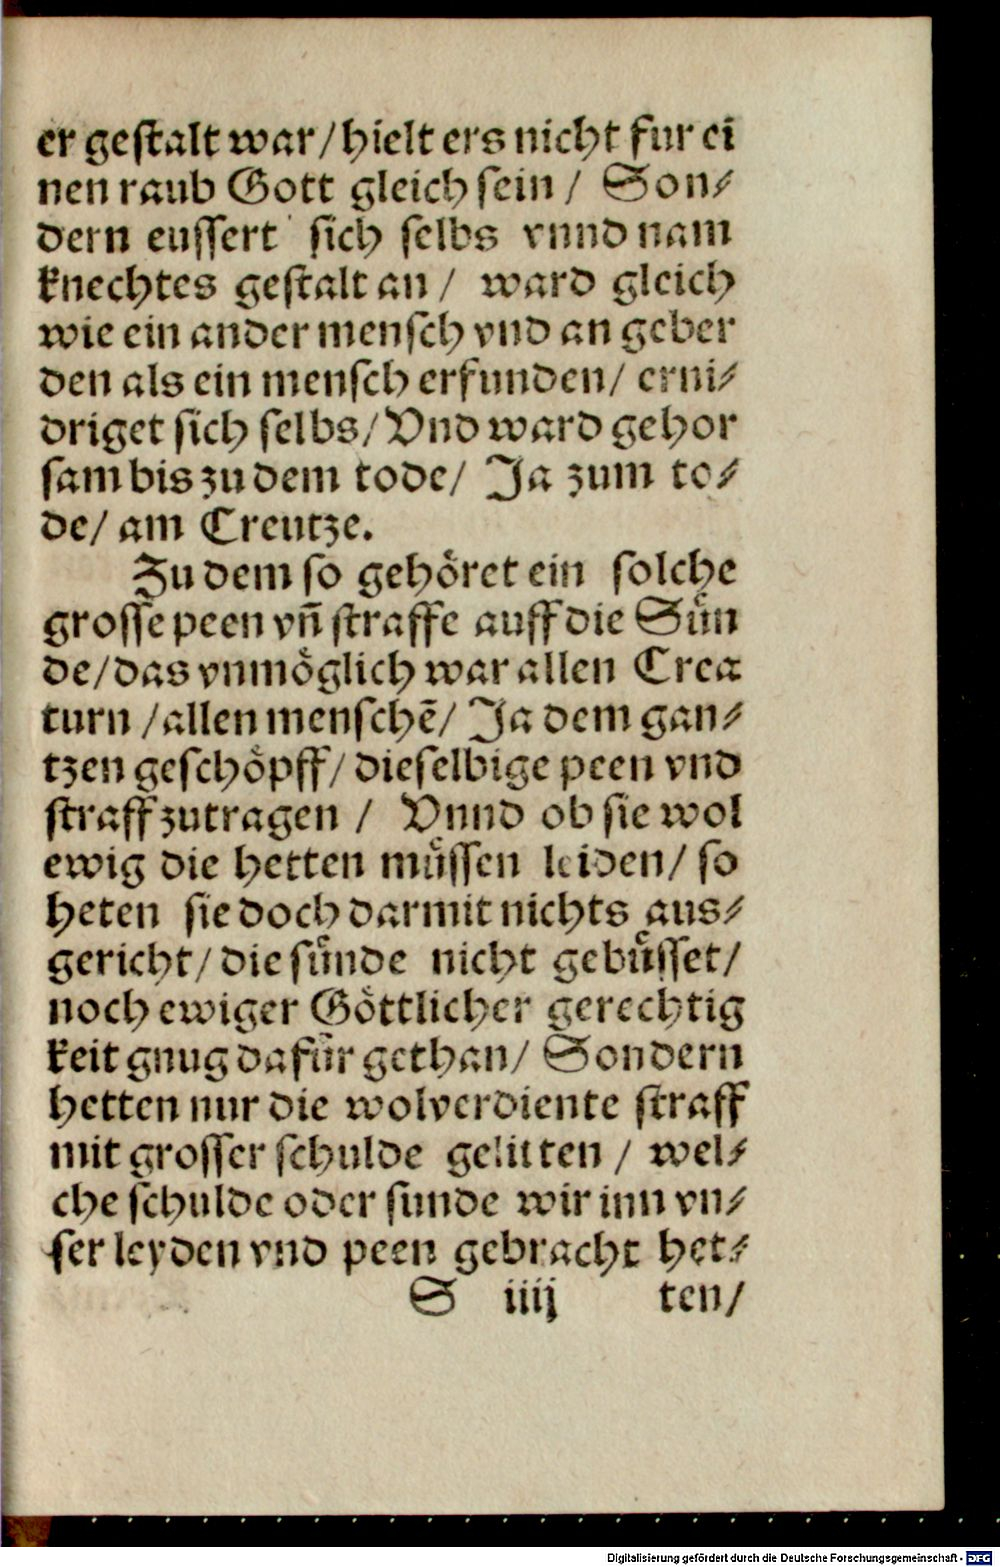 er geſtalt war / hielt ers nicht fur ei
nen raub Gott gleich ſein / Son⸗
dern euſſert ſich ſelbs vnnd nam
knechtes geſtalt an / ward gleich
wie ein ander menſch vnd an geber
den als ein menſch erfunden / erni⸗
driget ſich ſelbs / Vnd ward gehor
ſam bis zu dem tode / Ja zum to⸗
de / am Creutze.
Zu dem ſo gehoͤret ein ſolche
groſſe peen vñ ſtraffe auff die Suͤn
de / das vnmoͤglich war allen Crea
turn / allen menſchẽ / Ja dem gan⸗
tzen geſchoͤpff / dieſelbige peen vnd
ſtraff zutragen / Vnnd ob ſie wol
ewig die hetten muͤſſen leiden / ſo
heten ſie doch darmit nichts aus⸗
gericht / die ſuͤnde nicht gebuͤſſet /
noch ewiger Goͤttlicher gerechtig
keit gnug dafuͤr gethan / Sondern
hetten nur die wolverdiente ſtraff
mit groſſer ſchulde gelitten / wel⸗
che ſchulde oder ſunde wir inn vn⸗
ſer leyden vnd peen gebracht het⸗
S iiij ten /
Digitalisierung gefördert durch die Deutsche Forschungsgemeinschaft - DFG